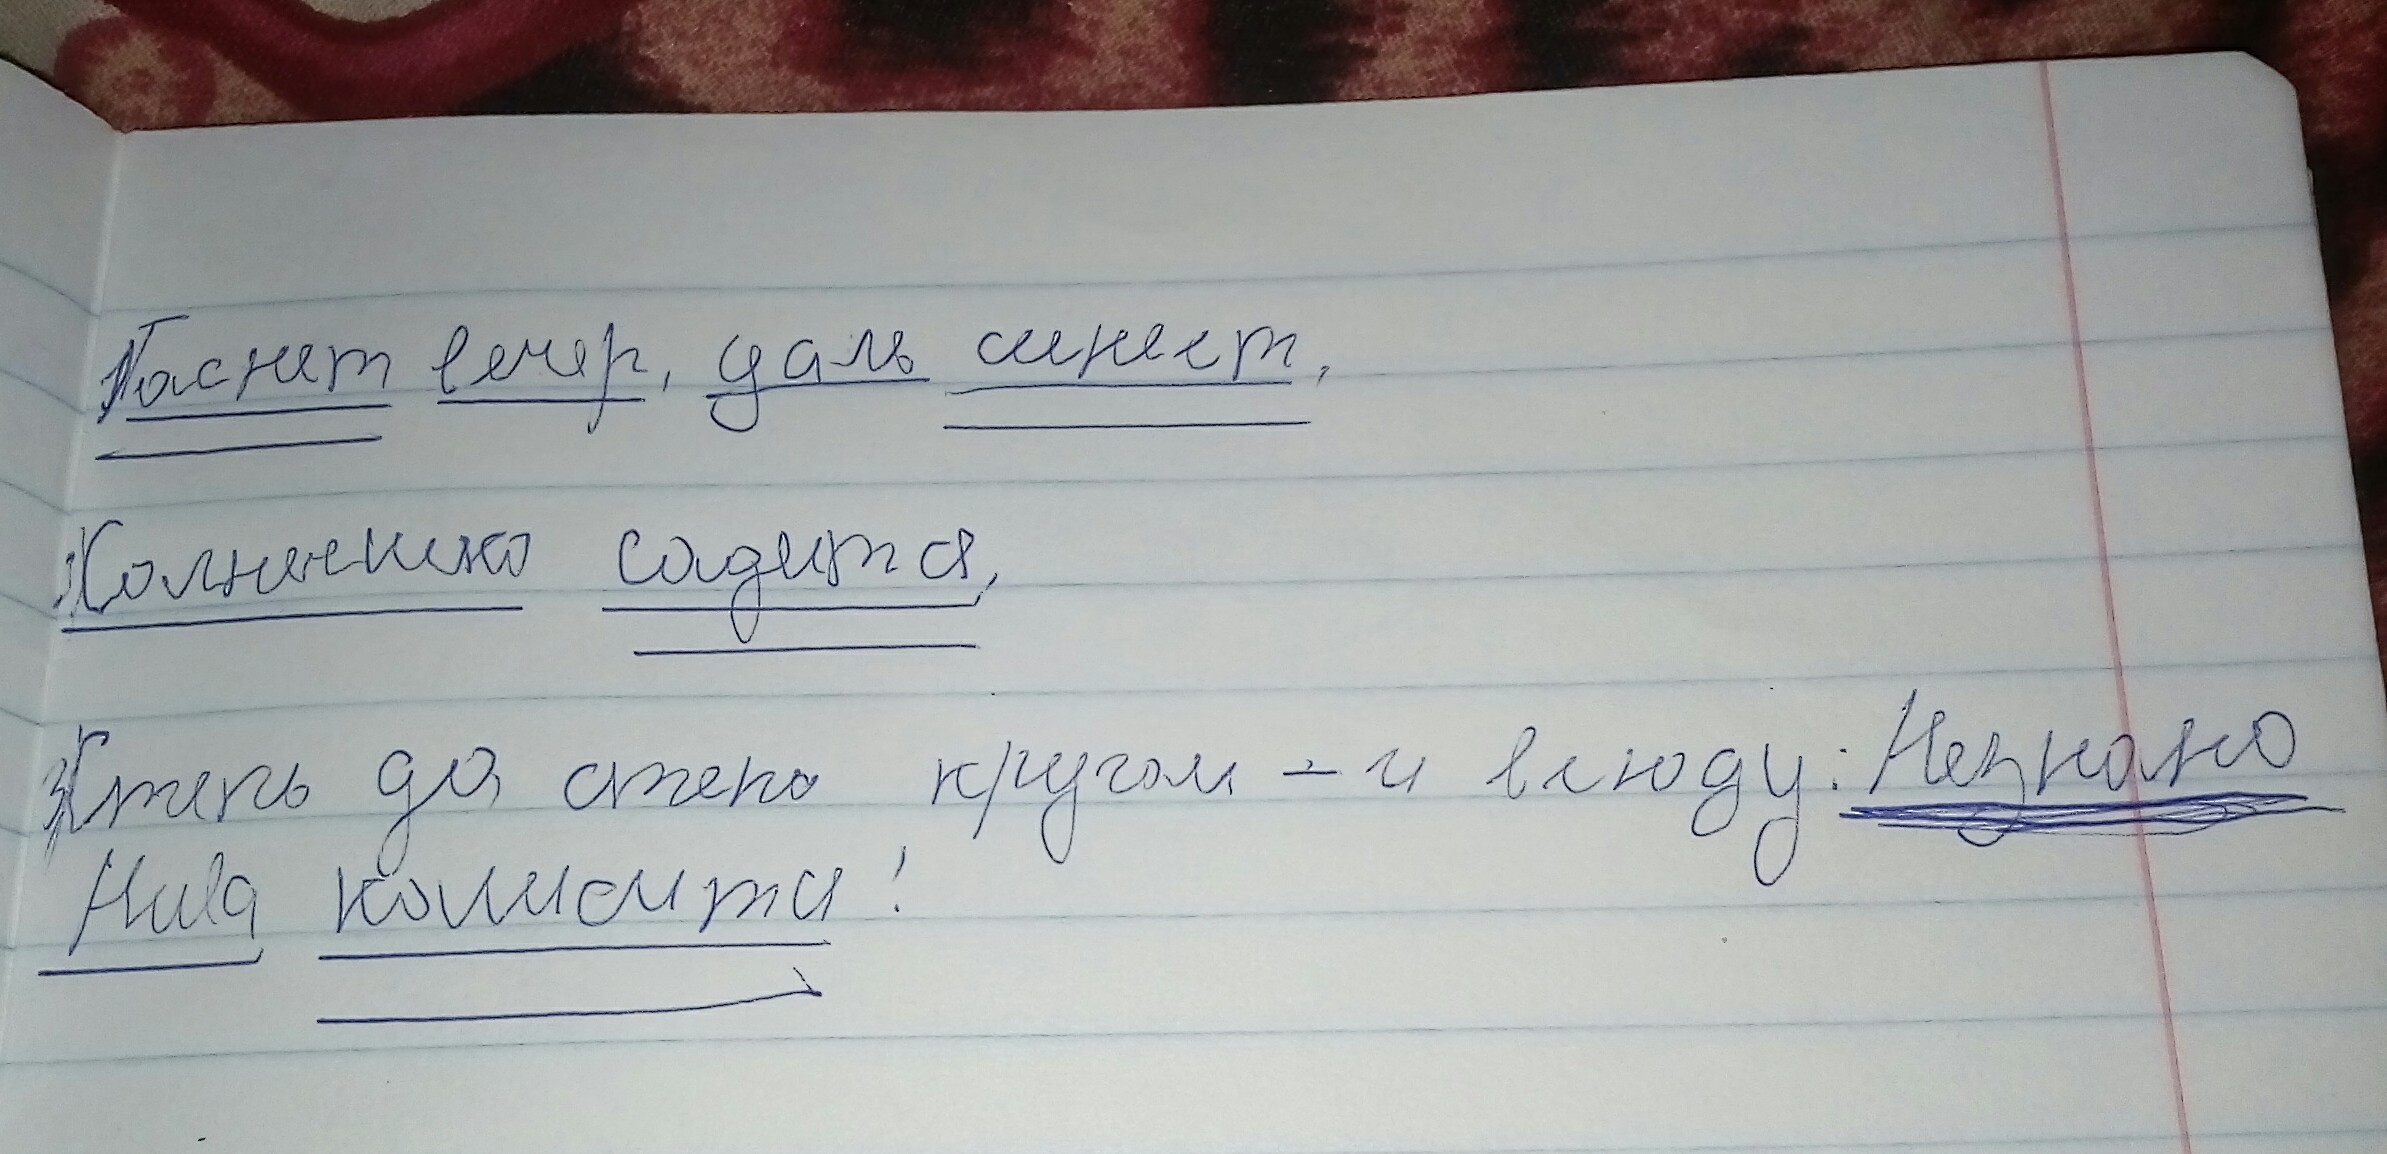 Гаснет вечер, даль синеет,
Солнышко садится,
Степь да степь кругом – и всюду: Незнано
Нива колосится!